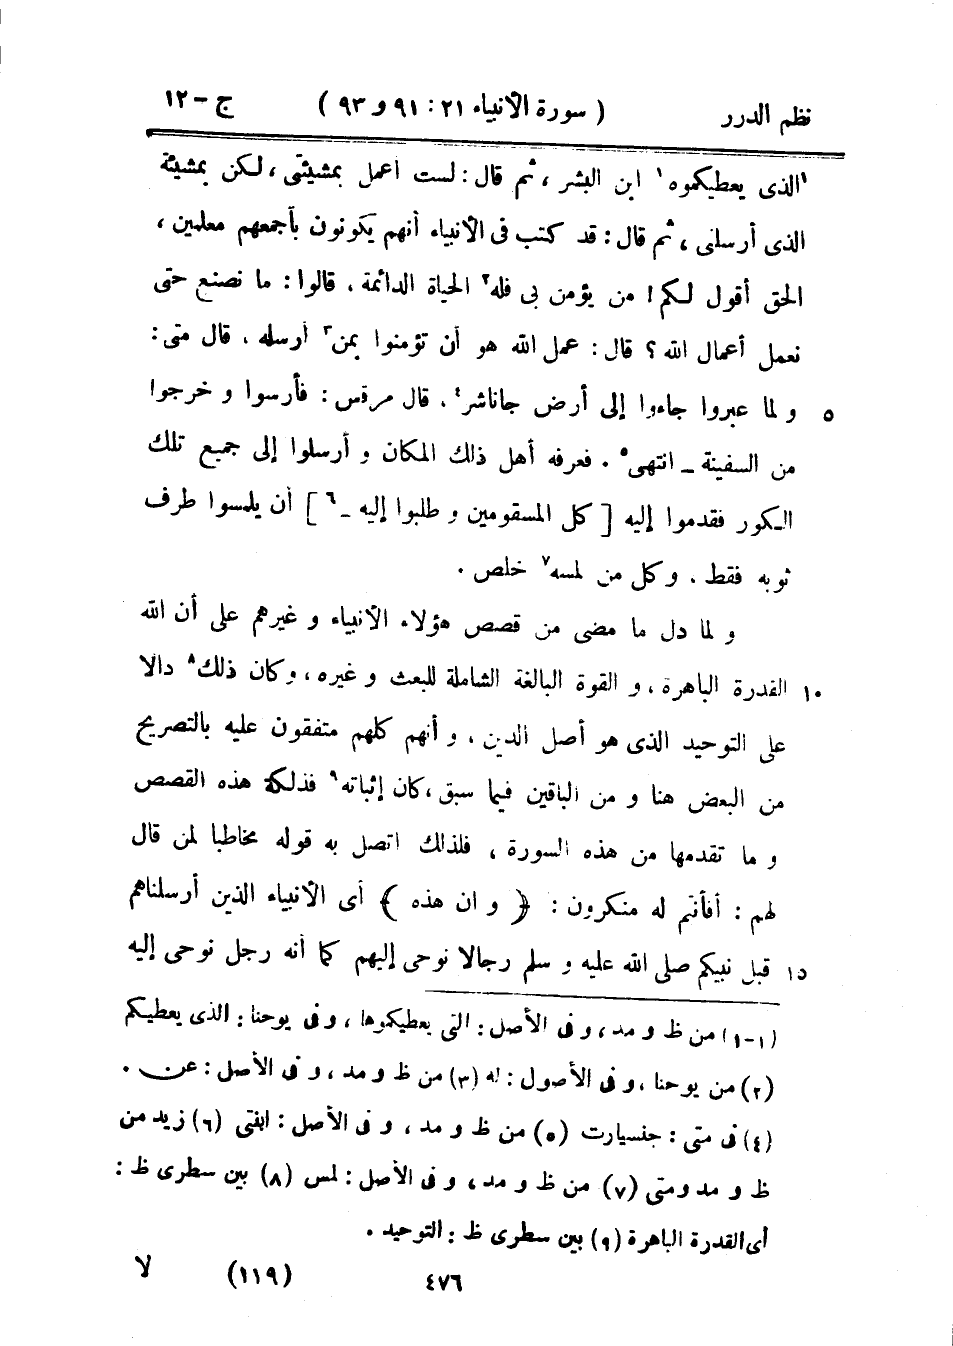 نظم الدرر ( سورة الأنبياء ٢١ : ٩١ و ٩٣ ) ج – ١٢
١الذى يعطيكموه١ ابن البشر ، ثم قال : لست أعمل بمشيئتى ، لكن بمشيئة
الذى أرسلنى ، ثم قال : قد كتب فى الأنبياء أنهم يكونون بأجمعهم معلمين ،
الحق أقول لكم ! من يؤمن بى فله٢ الحياة الدائمة . قالوا : ما نصنع حتى
نعمل أعمال الله ؟ قال : عمل الله هو أن تؤمنوا بمن٣ أرسله . قال متى :
٥ و لما عبروا جاءوا إلى أرض جاناشر٤ . قال مرقس : فأرسوا و خرجوا
من السفينة – انتهى٥ . فعرفه أهل ذلك المكان و أرسلوا إلى جميع تلك
الكور فقدموا إليه [ كل المسقومين و طلبوا إليه –٦ ] أن يلمسوا طرف
ثوبه فقط . و كل من لمسه٧ خلص .
و لما دل ما مضى من قصص هؤلاء الأنبياء و غيرهم على أن الله
١٠ القدرة الباهرة ، و القوة البالغة الشاملة للبعث و غيره ، و كان ذلك٨ دالا
على التوحيد الذى هو أصل الدين ، و أنهم كلهم متفقون عليه بالتصريح
من البعض هنا و من الباقين فيما سبق ، كان إثباته٩ فذلكة هذه القصص
و ما تقدمها من هذه السورة ، فلذلك اتصل به قوله مخاطبا لمن قال
لهم : أفأنتم له منكرون : ﴿ و ان هذه ﴾ أى الأنبياء الذين أرسلناهم
١٥ قبل نبيكم صلى الله عليه و سلم رجالا نوحى إليهم كما أنه رجل نوحى إليه
(١–١) من ظ و مد ، و فى الأصل : التى يعطيكموها ، و فى يوحنا : الذى يعطيكم
(٢) من يوحنا ، و فى الأصول : له (٣) من ظ و مد ، و فى الأصل : عن .
(٤) فى متى : جنسيارت (٥) من ظ و مد ، و فى الأصل : ابقتى (٦) زيد من
ظ و مد و متى (٧) من ظ و مد ، و فى الأصل : لمس (٨) بين سطرى ظ :
أى القدرة الباهرة (٩) بين سطرى ظ : التوحيد .
٤٧٦ (١١٩) لا